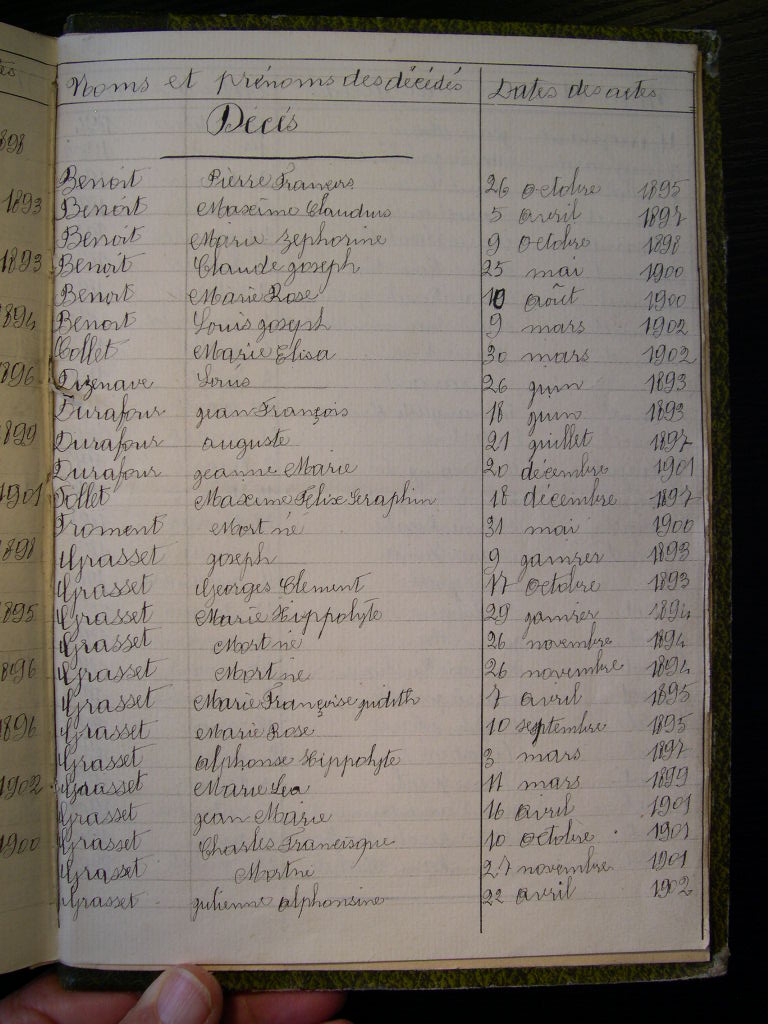 Noms et prénoms des décédés Dates des actes
Décés
Benoit Pierre François 26 octobre 1895
Benoit Maxime Claudius 5 avril 1897
Benoit Marie Zephorine 9 octobre 1898
Benoit Claude joseph 25 mai 1900
Benoit Marie Rose 10 août 1900
Benoit Louis joseph 9 mars 1902
Collet Marie Elisa 30 mars 1902
Dizenave Louis 26 juin 1893
Durafour jean François 18 juin 1893
Durafour auguste 21 juillet 1897
Durafour jeanne Marie 20 décembre 1901
Follet Maxime Félix Seraphin 18 décembre 1897
Froment Mort né 31 mai 1900
Grasset joseph 9 janvier 1893
Grasset Georges Clement 17 octobre 1893
Grasset Marie Hippolyte 29 janvier 1894
Grasset Mort né 26 novembre 1894
Grasset Mort né 26 novembre 1894
Grasset Marie Françoise judith 7 avril 1895
Grasset Marie Rose 10 septembre 1895
Grasset alphonse Hippolyte 3 mars 1897
Grasset Marie Lea 11 mars 1899
Grasset jean Marie 16 avril 1901
Grasset Charles Francisque 10 octobre 1901
Grasset Mort né 27 novembre 1901
Grasset julienne alphonsine 22 avril 1902
1893
1893
1894
1896
1899
1901
1898
1895
1896
1896
1902
1900